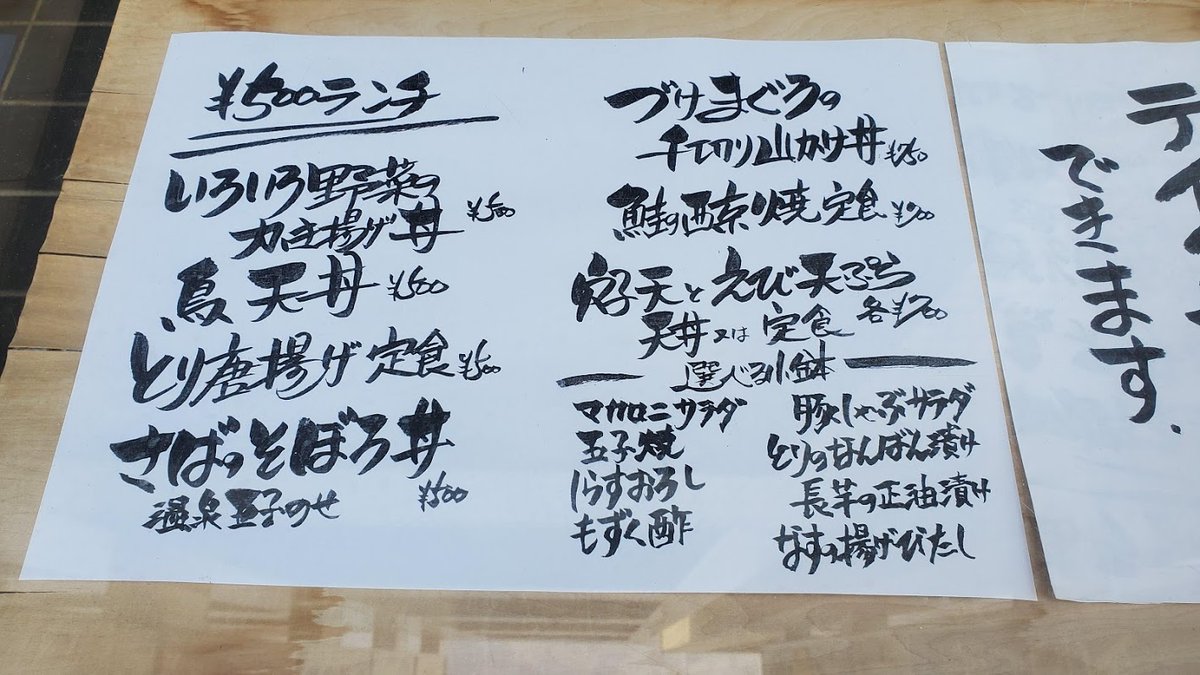 ¥500ランチ
いろいろ野菜の
かき揚げ丼 ¥500
鳥天丼 ¥500
とり唐揚げ定食 ¥500
さばのそぼろ丼
温泉玉子のせ ¥500
づけまぐろの
千切り山かけ丼 ¥750
鮭の西京焼定食 ¥700
穴子天とえび天ぷら
天丼又は定食 各¥700
選べる小鉢
マカロニサラダ
玉子焼
しらすおろし
もずく酢
豚しゃぶサラダ
とりのなんばん漬け
長芋の正油漬け
なすの揚げびたし
できます.